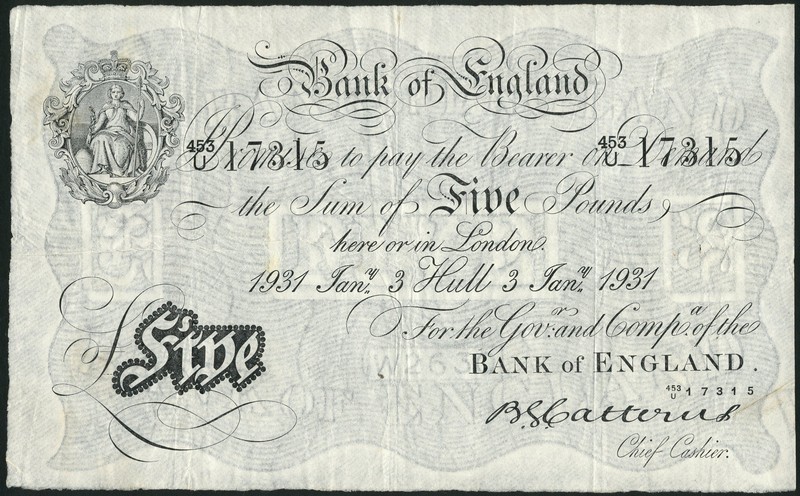 Bank of England
453/U 17315 Promise to pay the Bearer on Demand 453/U 17315
the Sum of Five Pounds
here or in London.
1931 Jan.y 3 Hull 3 Jan.y 1931
For the Gov.r and Comp.a of the
Five
BANK of ENGLAND.
453/U 17315
B G Catterns
Chief Cashier.